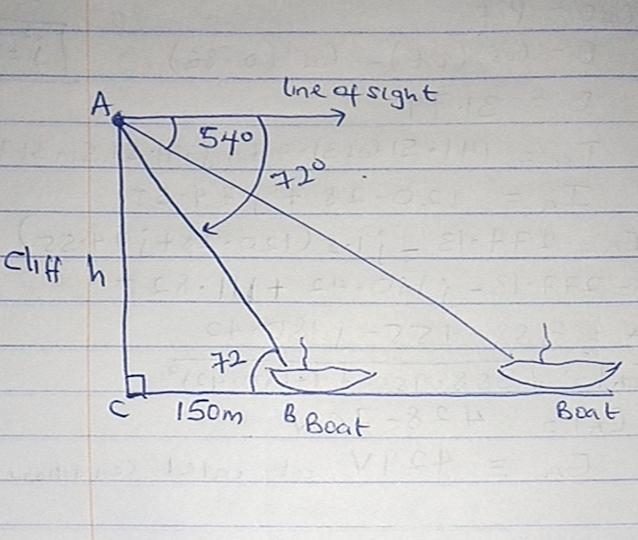 line of sight
A
54°
72°
Cliff h
72
C 150m B Boat Boat